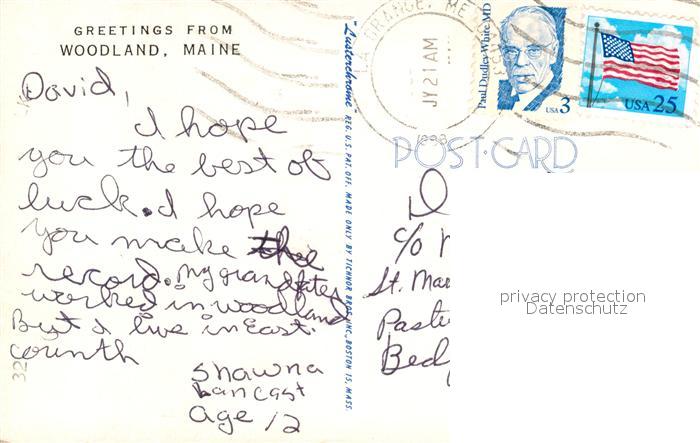 GREETINGS FROM
WOODLAND, MAINE
David,
I hope
you the best of
luck. I hope
you make the
record. My grandfater
worked in woodland
But I live in East.
Corinth
Shawna
Lancast
age 12
32
"Lusterchrome" REG. U.S. PAT. OFF. MADE ONLY BY TICHNOR BROS. INC., BOSTON 15, MASS.
ORANGE, ME
JY 21 AM
1988
Paul Dudley White MD
USA 3
USA 25
POST CARD
D
c/o
St. Mar
Paste
Bed
privacy protection
Datenschutz